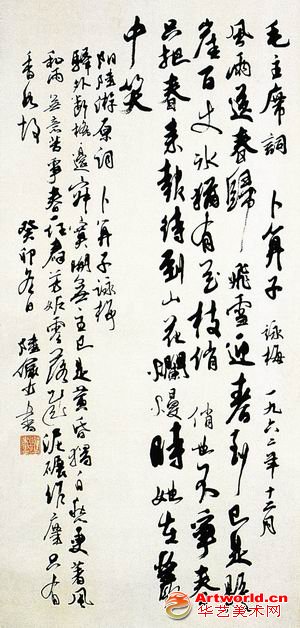 毛主席詞 卜算子 詠梅 一九六二年十二月
風雨送春歸 飛雪迎春到 已是懸
崖百丈冰 猶有花枝俏 俏也不爭春
只把春來報 待到山花爛熳時 她在叢
中笑
附陸游原詞 卜算子 詠梅
驛外斷橋邊 寂寞開無主 已是黃昏獨自愁 更著風
和雨 無意苦爭春 一任群芳妒 零落成泥碾作塵 只有
香如故 癸卯冬日 陸儼少書
Artworld.cn
华艺美术网